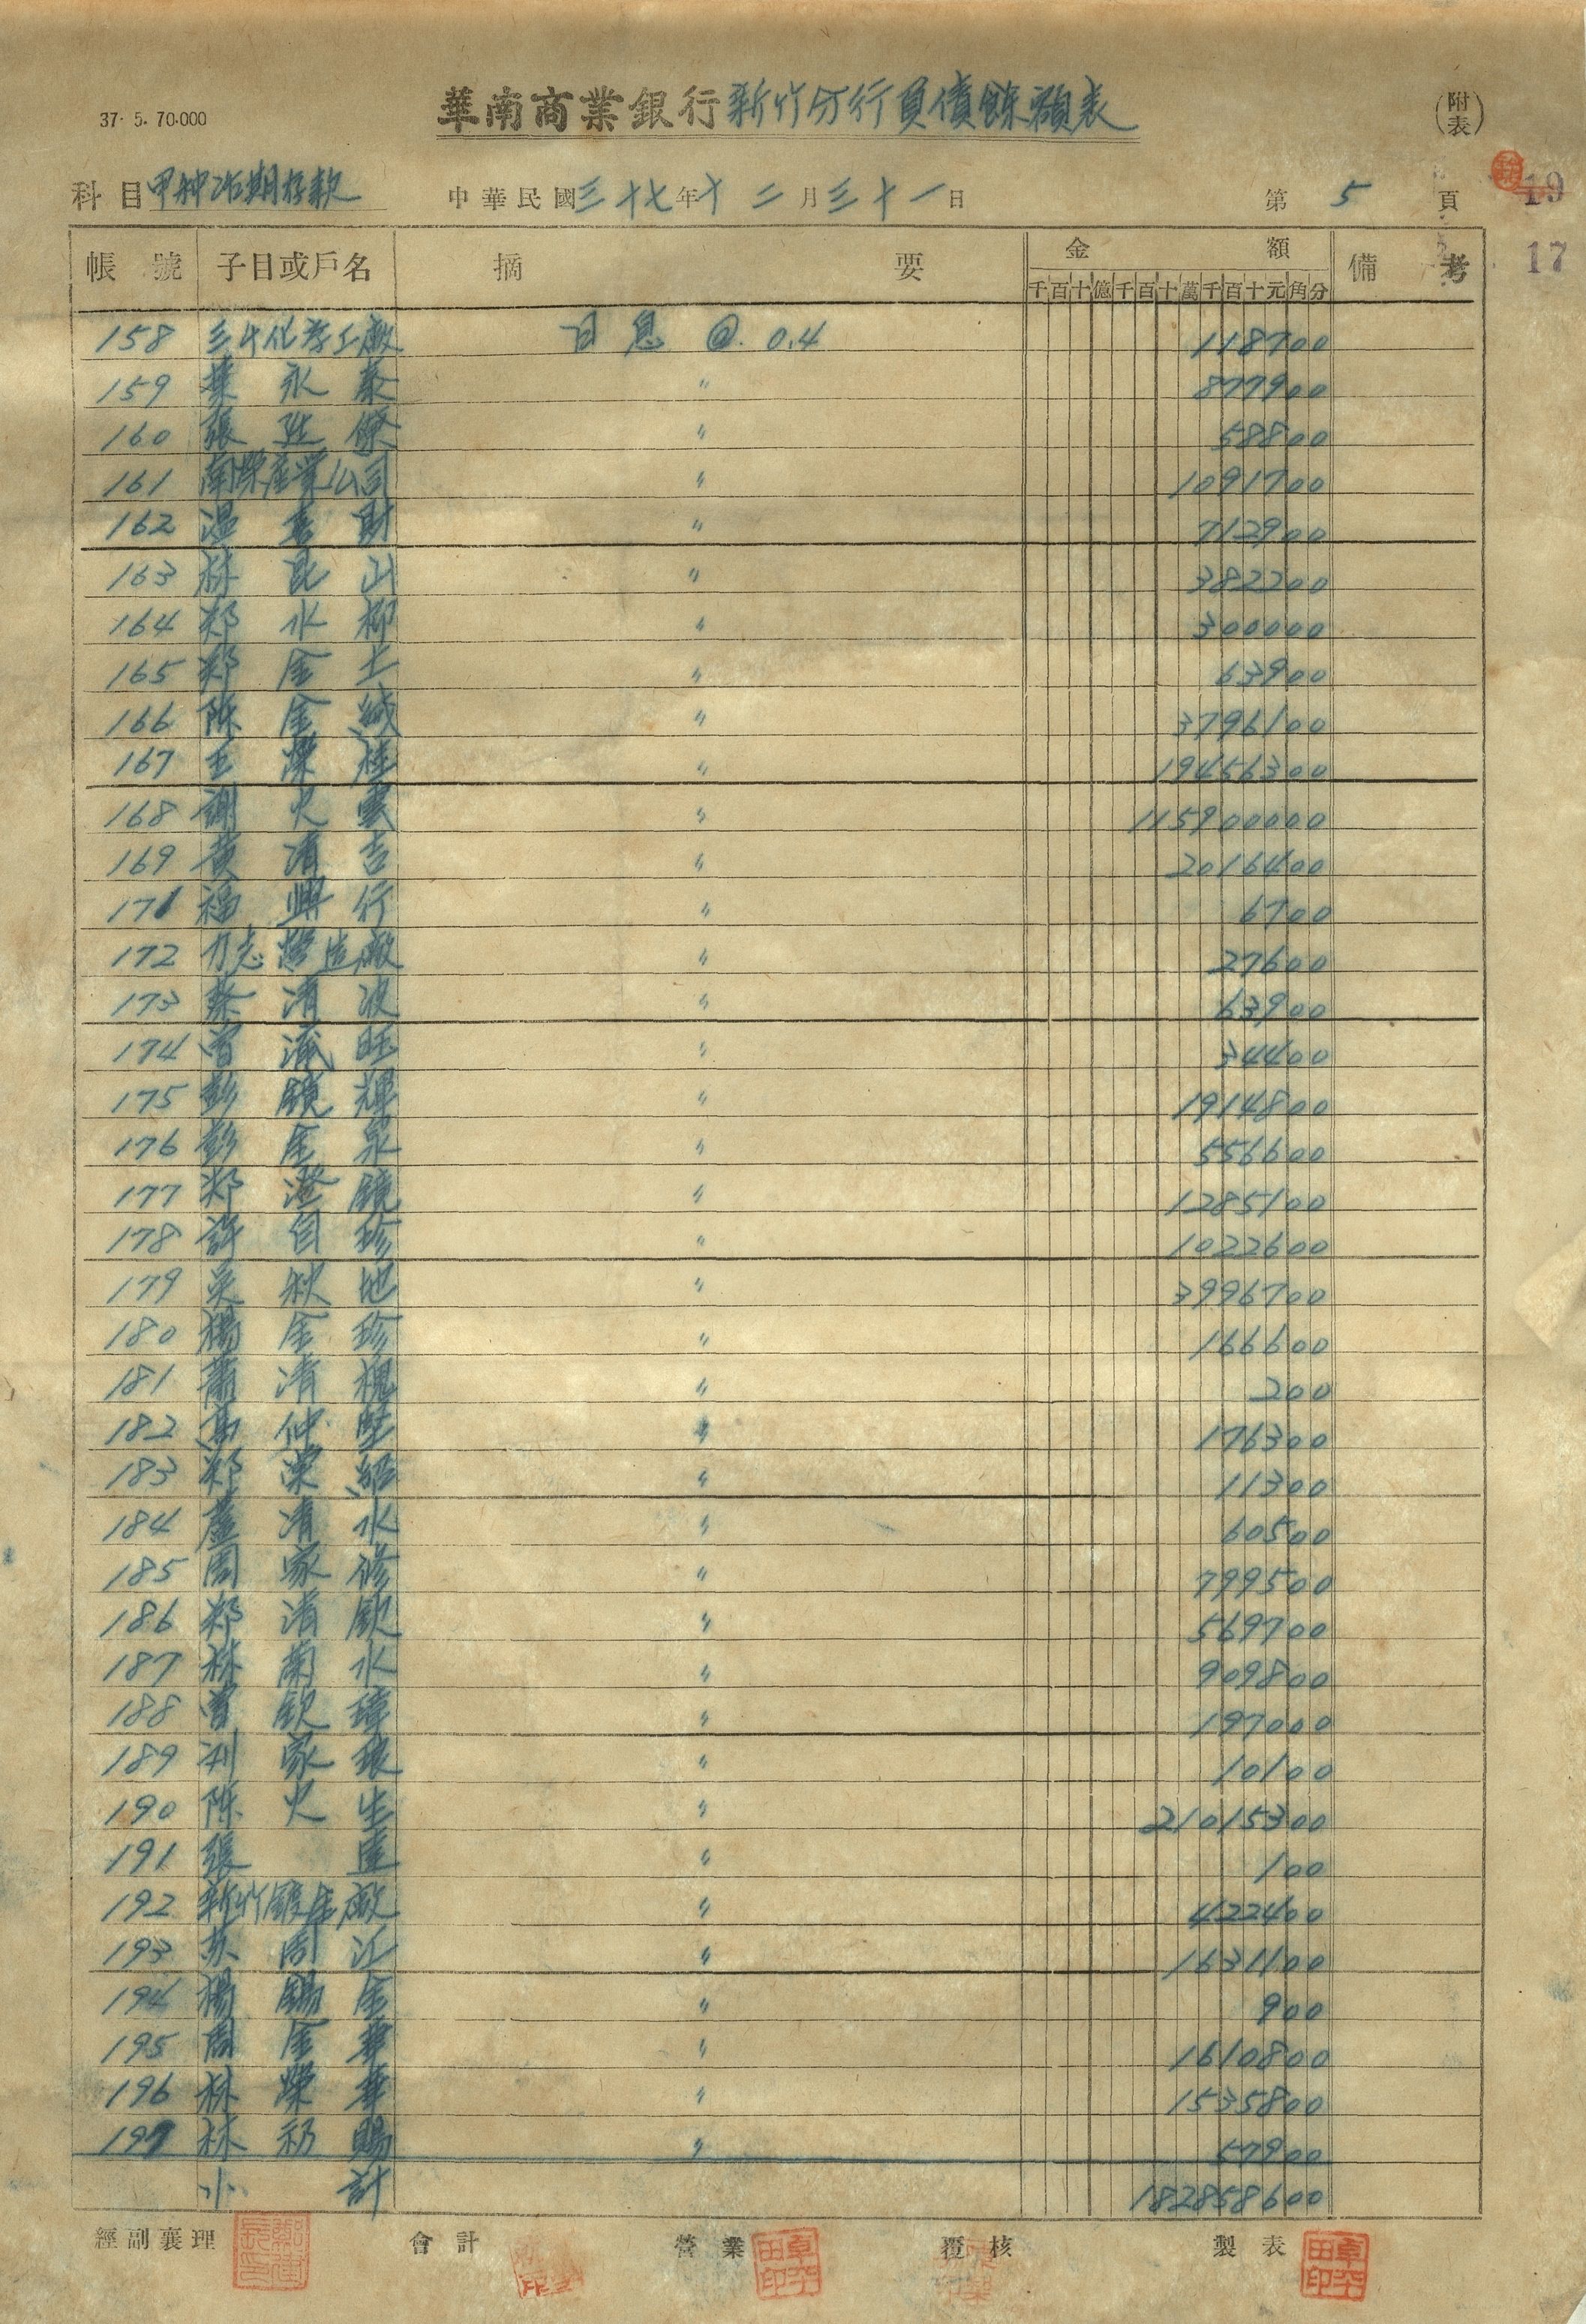 37. 5. 70.000
華南商業銀行新竹分行負債餘額表
(附表)
科目 甲种活期存款 中華民國三十七年十二月三十一日 第5頁 19
17
帳號 子目或戶名 摘要 金額 備考
千百十億千百十萬千百十元角分
158 化学工廠 日息 @ 0.4 118700
159 葉永泰 〃 877900
160 張 〃 58800
161 南榮産業公司 〃 1091700
162 温喜財 〃 712900
163 林昆山 〃 382200
164 郑水柳 〃 300000
165 郑金土 〃 63900
166 陈金 〃 3796100
167 王荣桂 〃 19456300
168 謝火雲 〃 115900000
169 黄清吉 〃 2016400
171 福興行 〃 6700
172 力志營造廠 〃 27600
173 蔡清波 〃 63900
174 曾旺 〃 34400
175 彭鏡輝 〃 1914800
176 彭金泉 〃 556600
177 郑澄鏡 〃 1285100
178 許自珍 〃 1022600
179 吳秋地 〃 3996700
180 楊金珍 〃 166600
181 蕭清槐 〃 200
182 高仲堅 〃 176300
183 郑荣紹 〃 11300
184 蘆清水 〃 60500
185 周家修 〃 799500
186 郑清欽 〃 569700
187 林蘭水 〃 909800
188 曾欽璋 〃 197000
189 家 〃 10100
190 陈火生 〃 21015300
191 張 〃 100
192 新竹鍍金廠 〃 422400
193 苏周江 〃 1631100
194 楊錫金 〃 900
195 周金華 〃 1610800
196 林荣華 〃 1535800
197 林賜 〃 57900
小計 182858600
經副襄理 會計 營業 覆核 製表
卓平田印 卓平田印